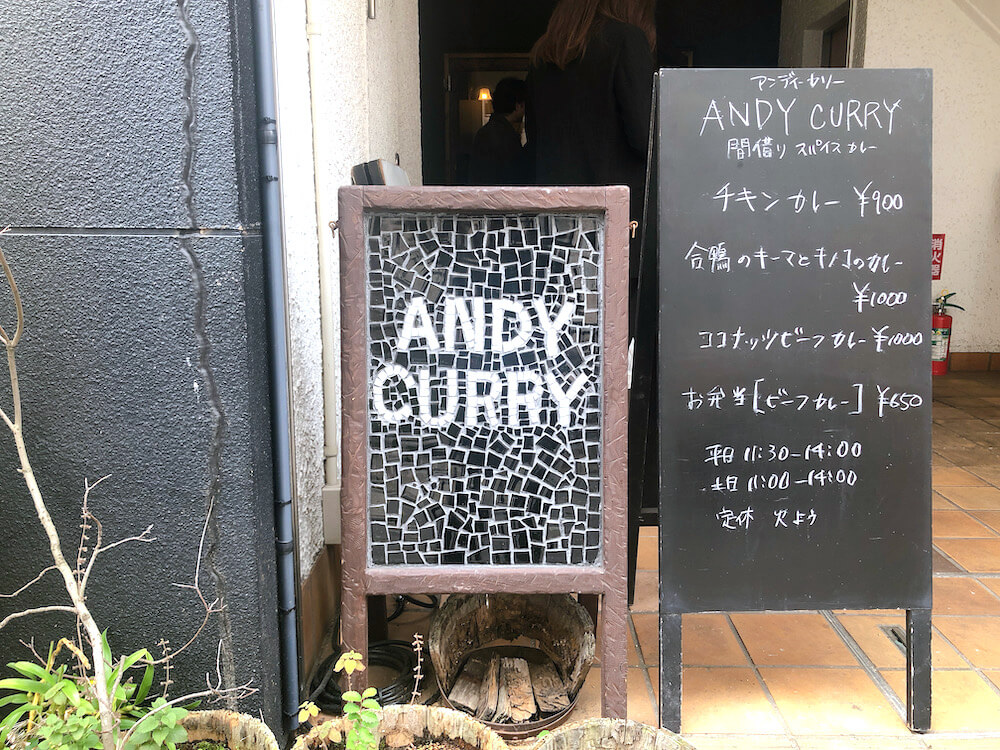 ANDY
CURRY
アンディーカリー
ANDY CURRY
間借り スパイスカレー
チキンカレー ¥900
合鴨のキーマとキノコのカレー
¥1000
ココナッツビーフカレー ¥1000
お弁当[ビーフカレー] ¥650
平日 11:30-14:00
土日 11:00-14:00
定休 火よう
消火器